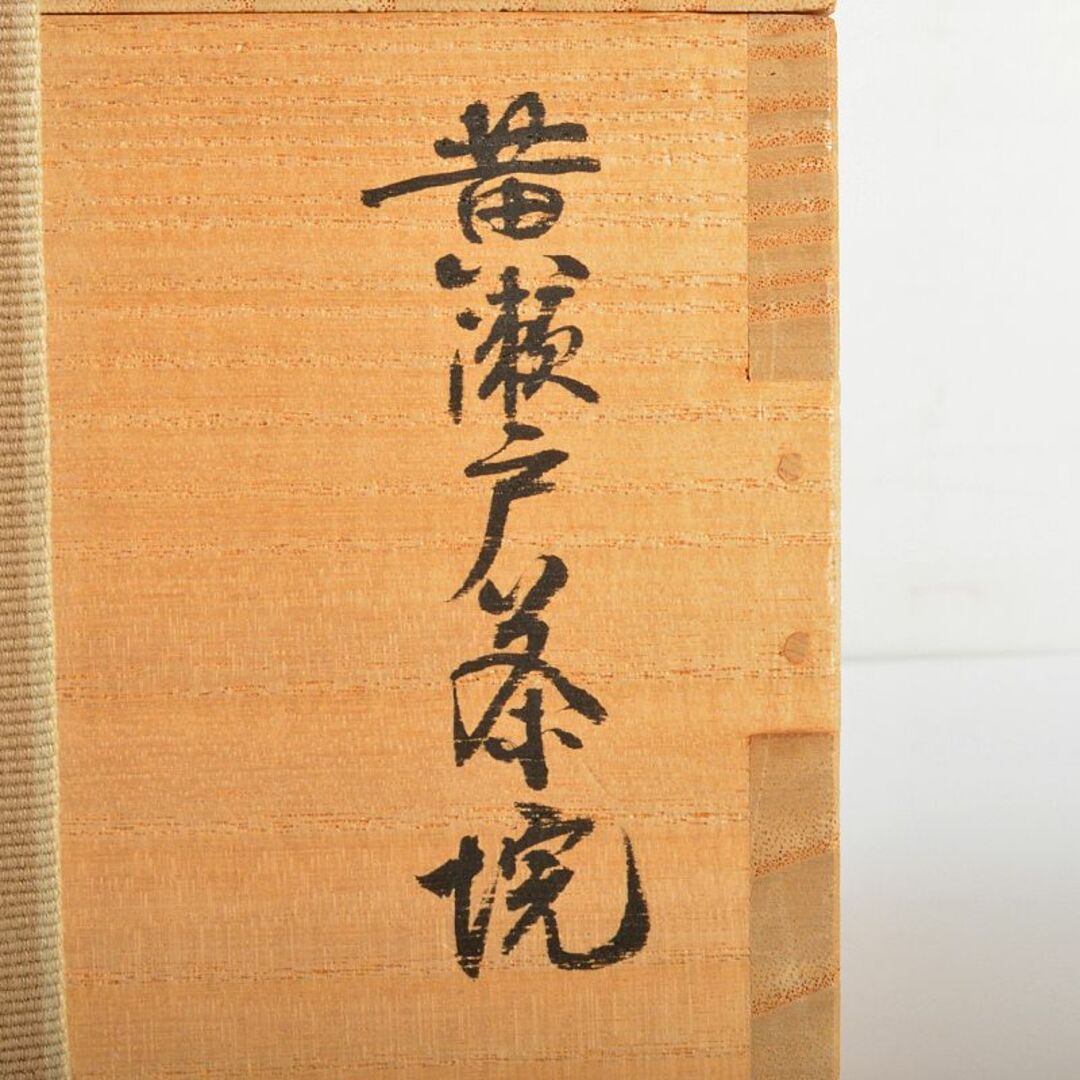 黄瀬戸茶垸